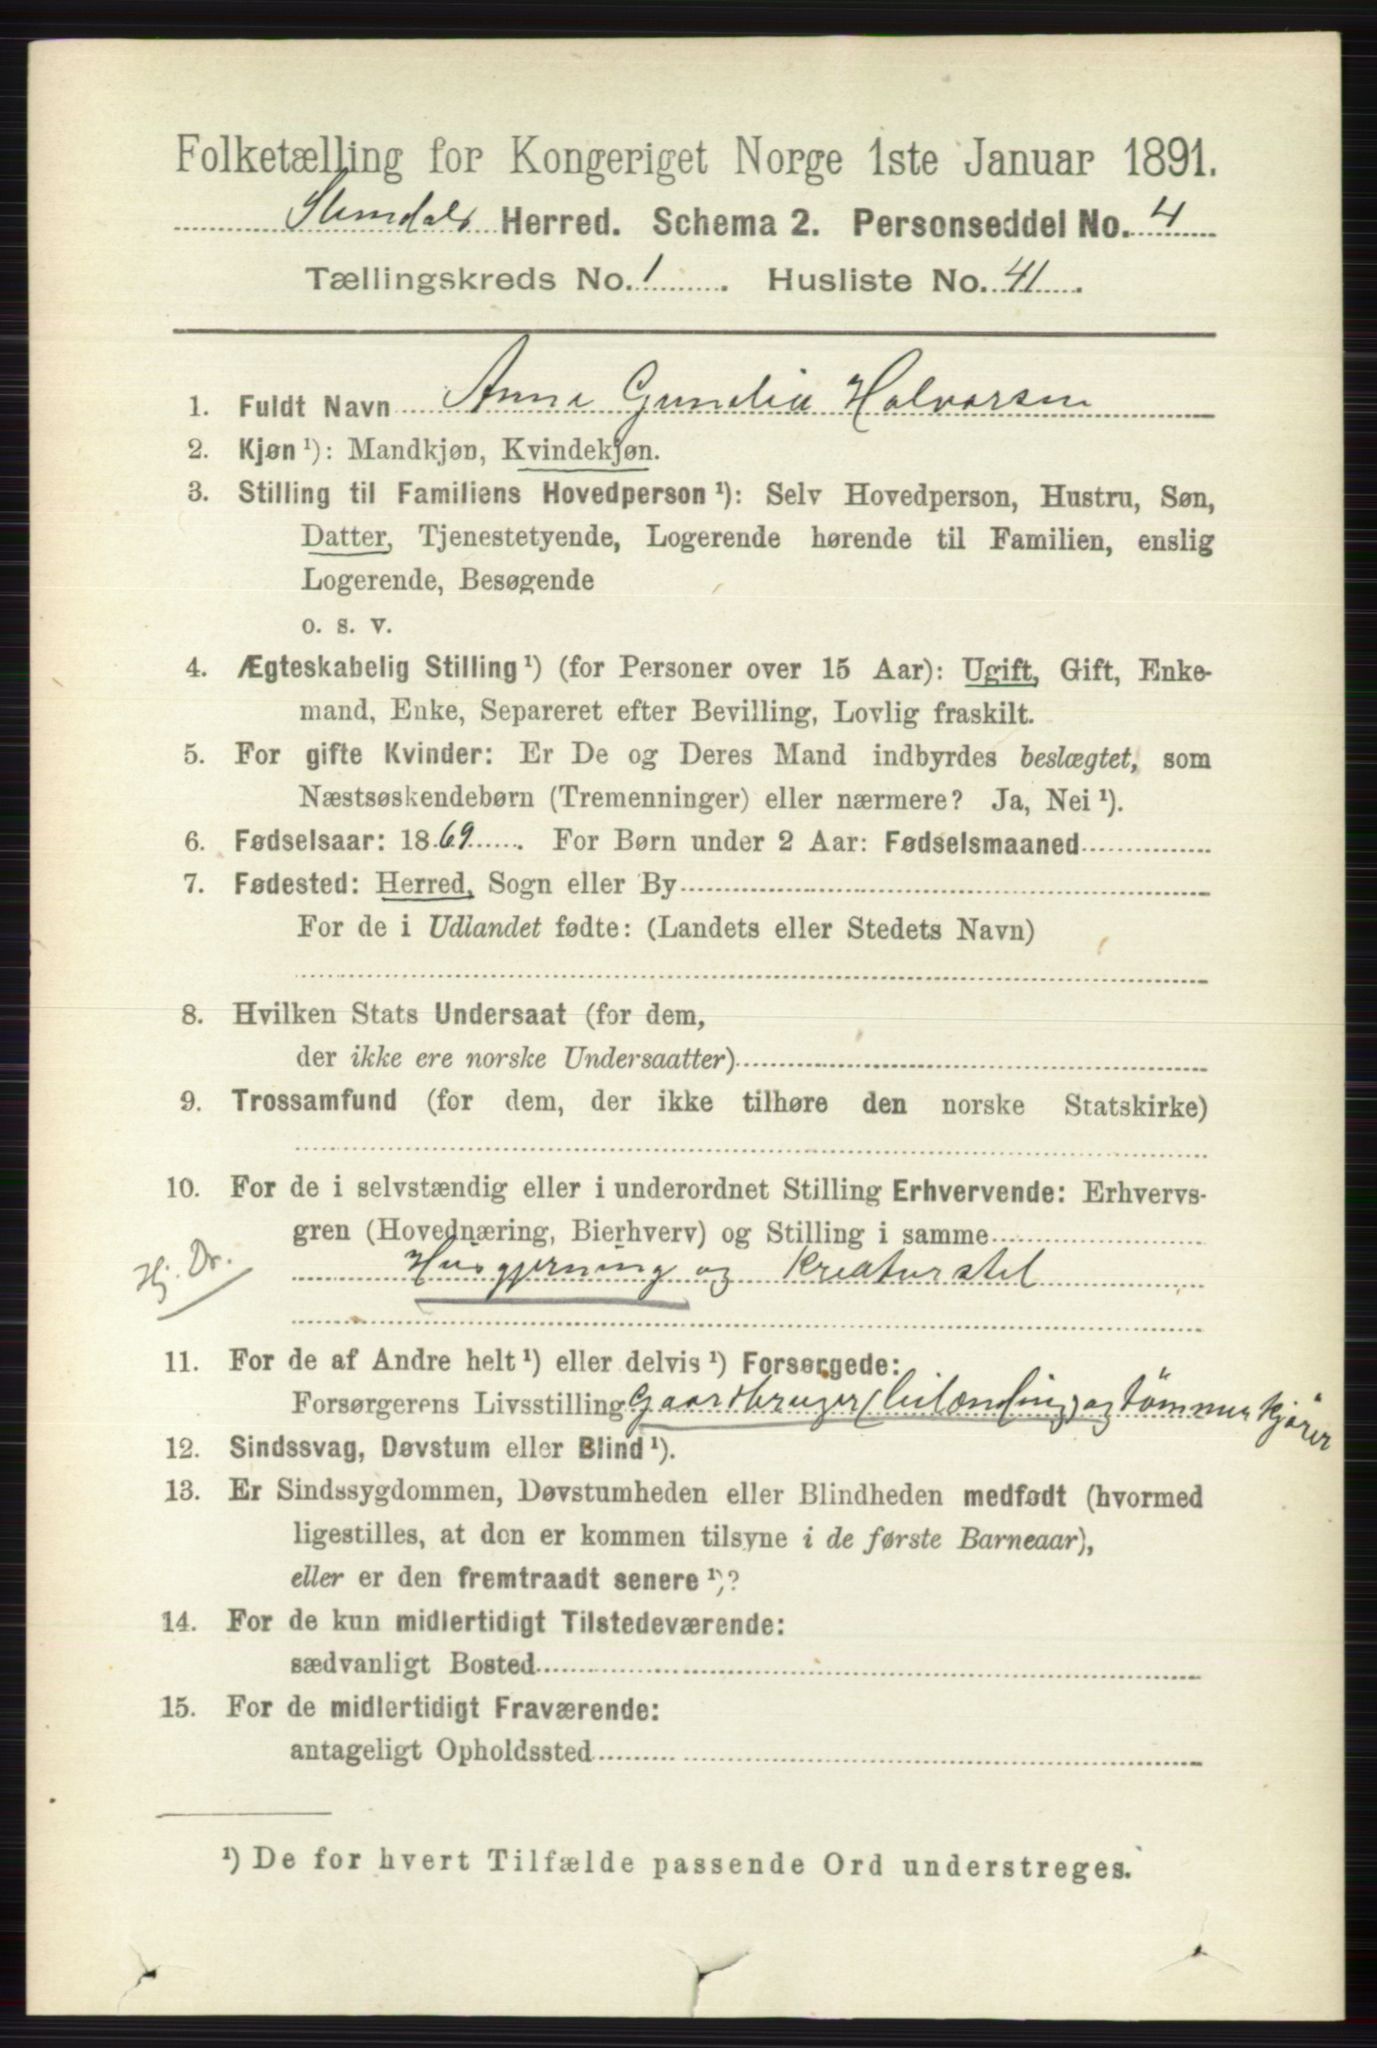 Folketælling for Kongeriget Norge 1ste Januar 1891.
Slemdals Herred. Schema 2. Personseddel No. 4
Tællingskreds No. 1. Husliste No. 41.
1. Fuldt Navn Anne Gunelia Halvorsen
2. Kjøn ¹): Mandkjøn, Kvindekjøn.
3. Stilling til Familiens Hovedperson ¹): Selv Hovedperson, Hustru, Søn,
Datter, Tjenestetyende, Logerende hørende til Familien, enslig
Logerende, Besøgende
o. s. v.
4. Ægteskabelig Stilling ¹) (for Personer over 15 Aar): Ugift, Gift, Enke-
mand, Enke, Separeret efter Bevilling, Lovlig fraskilt.
5. For gifte Kvinder: Er De og Deres Mand indbyrdes beslægtet, som
Næstsøskendebørn (Tremenninger) eller nærmere? Ja, Nei ¹).
6. Fødselsaar: 1869. For Børn under 2 Aar: Fødselsmaaned
7. Fødested: Herred, Sogn eller By
For de i Udlandet fødte: (Landets eller Stedets Navn)
8. Hvilken Stats Undersaat (for dem,
der ikke ere norske Undersaatter)
9. Trossamfund (for dem, der ikke tilhøre den norske Statskirke)
10. For de i selvstændig eller i underordnet Stilling Erhvervende: Erhvervs-
gren (Hovednæring, Bierhverv) og Stilling i samme
Hj. Dr. Husgjerning og Kreaturstel
11. For de af Andre helt ¹) eller delvis ¹) Forsørgede:
Forsørgerens Livsstilling Gaardbruger (leilænding) og tömmerkjörer
12. Sindssvag, Døvstum eller Blind ¹).
13. Er Sindssygdommen, Døvstumheden eller Blindheden medfødt (hvormed
ligestilles, at den er kommen tilsyne i de første Barneaar),
eller er den fremtraadt senere ¹)?
14. For de kun midlertidigt Tilstedeværende:
sædvanligt Bosted
15. For de midlertidigt Fraværende:
antageligt Opholdssted
¹) De for hvert Tilfælde passende Ord understreges.